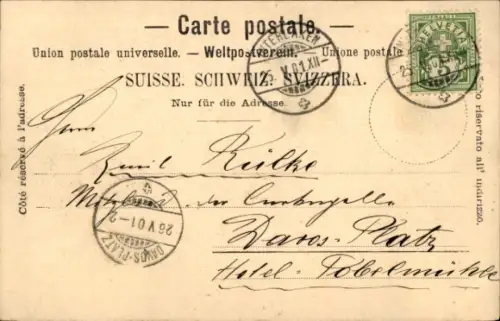 Carte postale.
Union postale universelle. – Weltpostverein. – Unione postale
SUISSE. SCHWEIZ. SVIZZERA.
Nur für die Adresse.
Côté réservé à l'adresse.
riservato all' indirizzo.
INTERLAKEN
V.01.XII
HELVETIA
5
Herrn
Emil Reilke
der
Davos-Platz
Hotel Tobelmühle
26.V.01-2
DAVOS-PLATZ